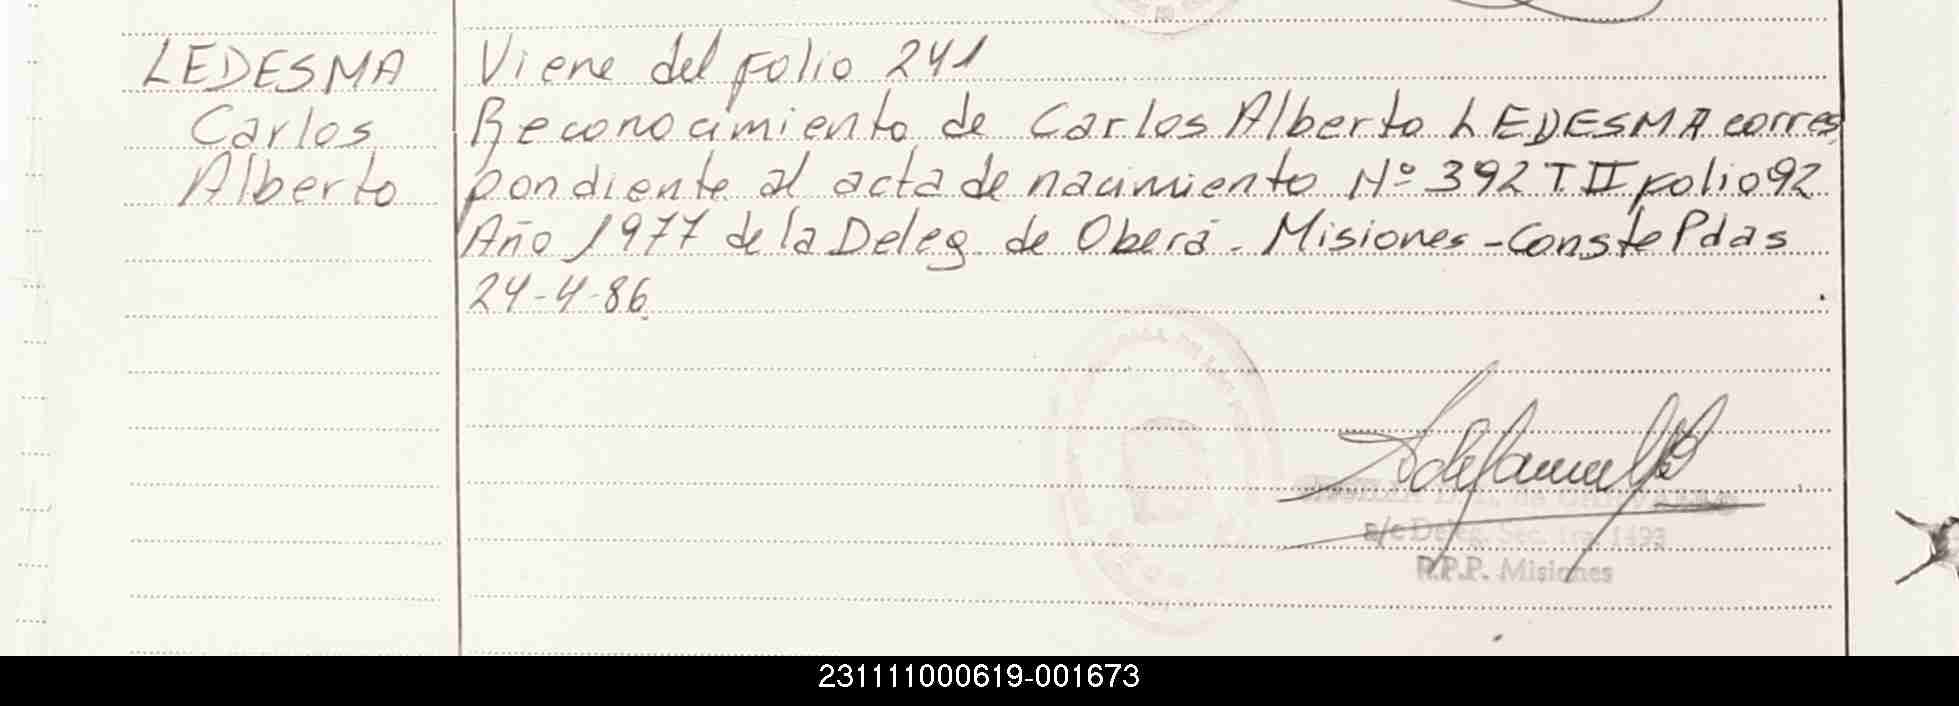 LEDESMA
Carlos
Alberto
Viene del folio 241
Reconocimiento de Carlos Alberto LEDESMA corres
pondiente al acta de nacimiento Nº 392 T II folio 92
Año 1977 de la Deleg. de Oberá - Misiones - Conste Pdas
24-4-86.
a/c Deleg. Sec. 1493
R.P.P. Misiones
231111000619-001673